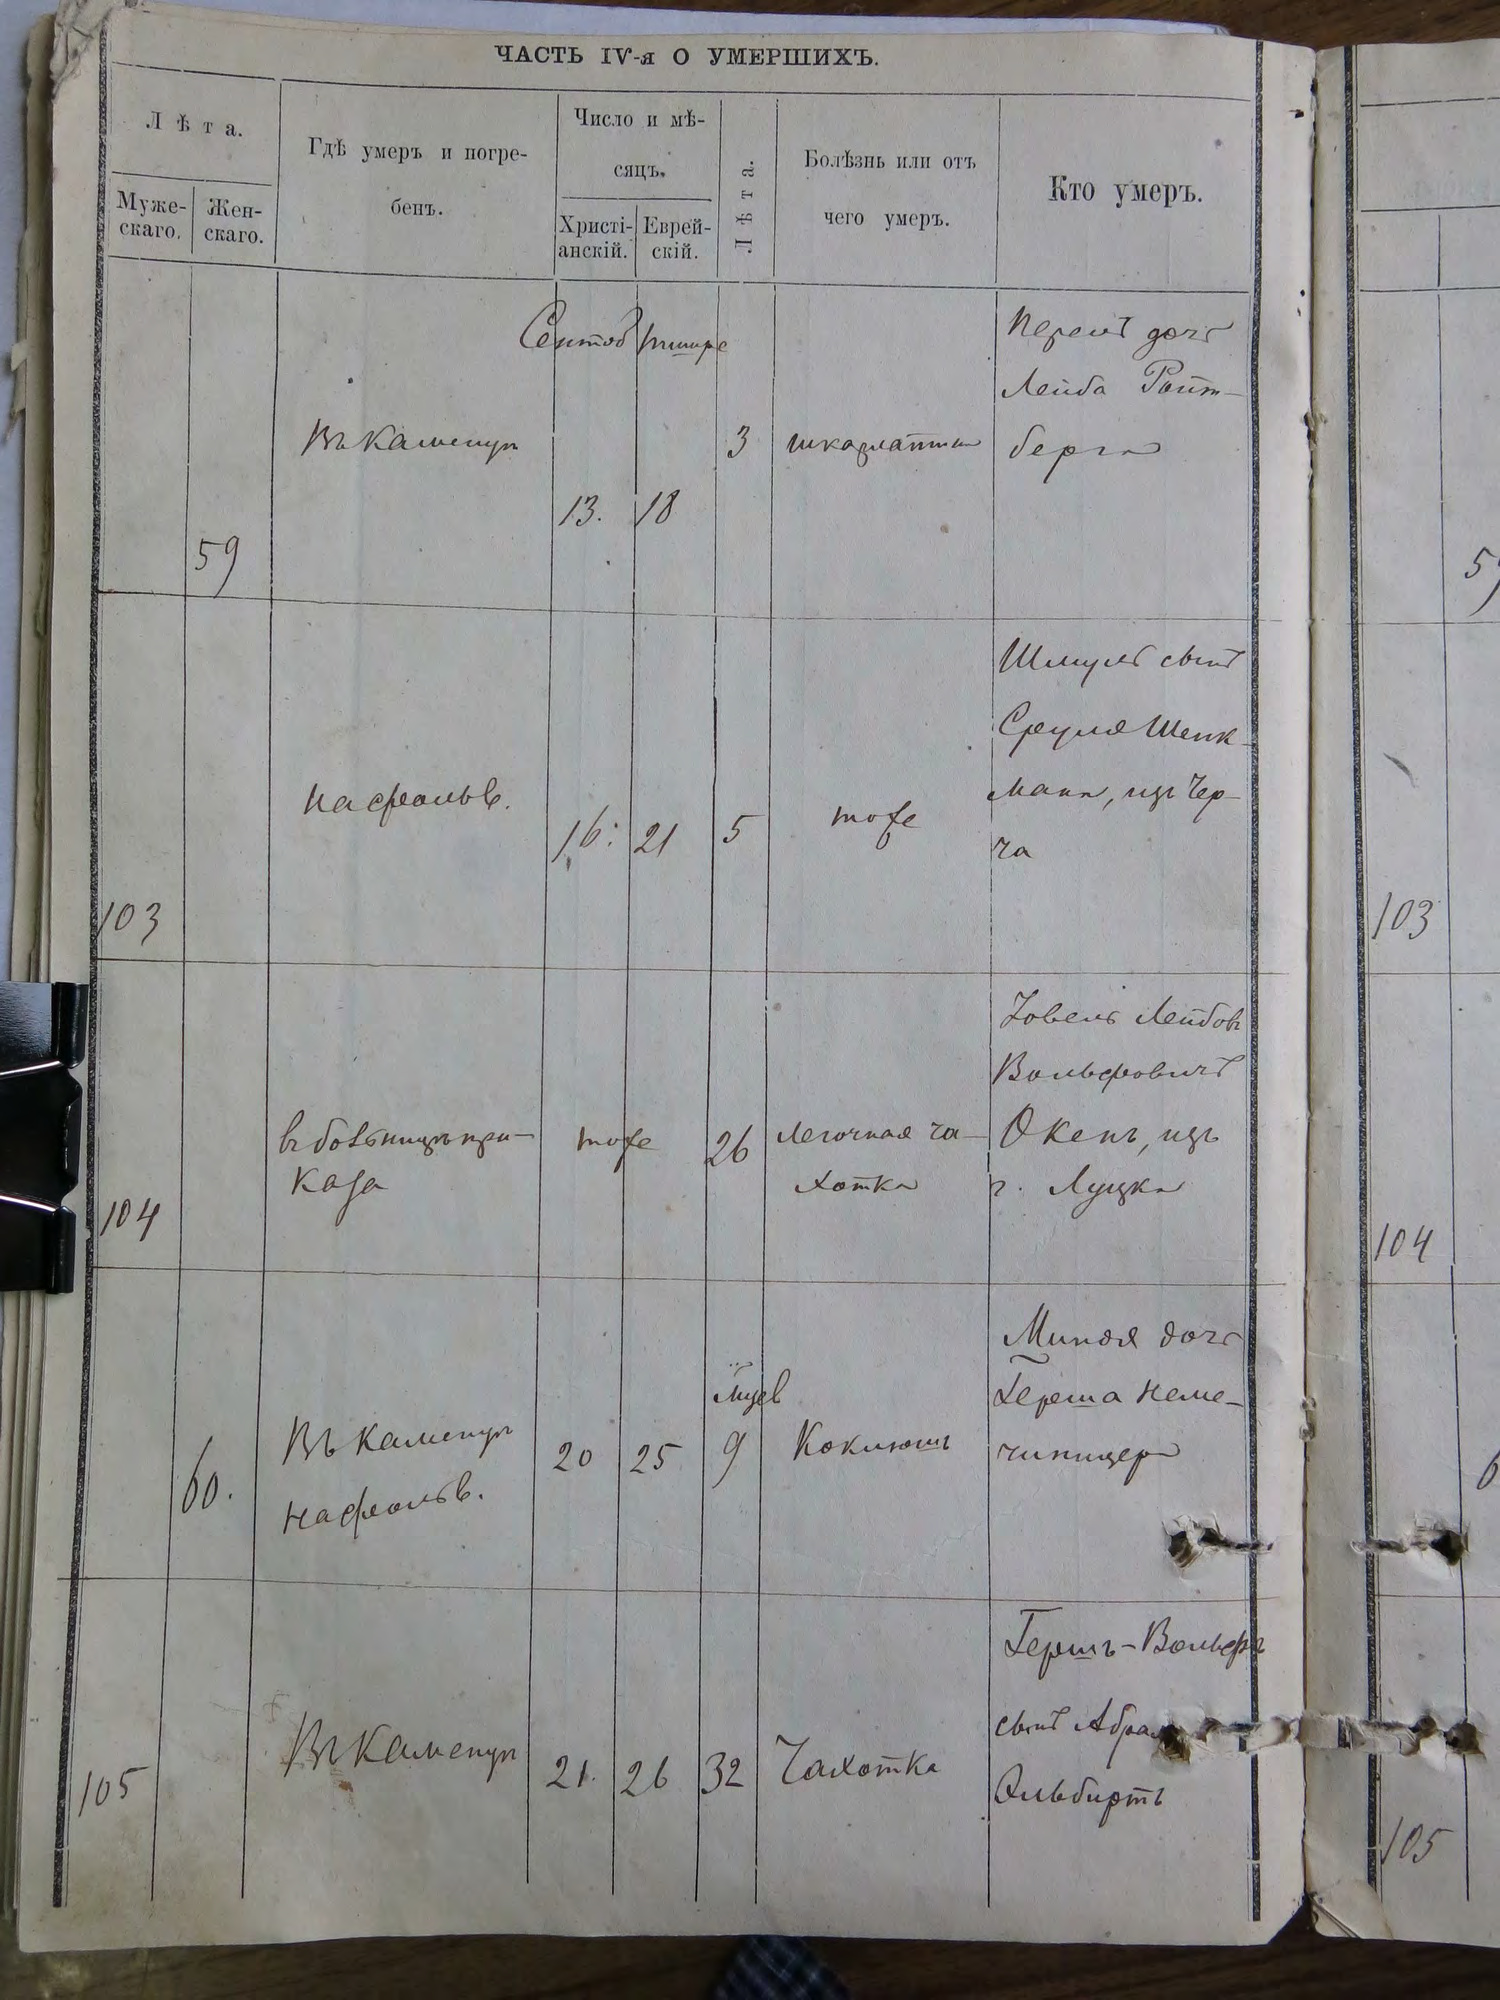 ЧАСТЬ IV-я О УМЕРШИХЪ.
Лѣта.
Муже-
скаго.
Жен-
скаго.
Гдѣ умеръ и погре-
бенъ.
Число и мѣ-
сяцъ.
Христі-
анскій.
Еврей-
скій.
Лѣта.
Болѣзнь или отъ
чего умеръ.
Кто умеръ.
Сентяб тишре
59
Въ Каменцѣ
13.
18
3
шкарлатина
Перель дочь
Лейба Ройт-
берга
59
103
на фольв.
16.
21
5
тоже
Шмуль сынъ
Сруля Шенк-
мана, изъ Чер-
ча
103
104
въ больницѣ при-
каза
тоже
26
легочная ча-
хотка
Іовель Лейбовъ
Вольфовичъ
Окенъ, изъ
г. Луцка
104
60.
Въ Каменцѣ
на фольв.
20
25
мцев
9
Коклюшъ
Миндя дочь
Герша Неме-
чиницера
6
105
Въ Каменцѣ
21.
26
32
Чахотка
Гершъ-Вольфъ
сынъ Абрам
Ольбиртъ
105